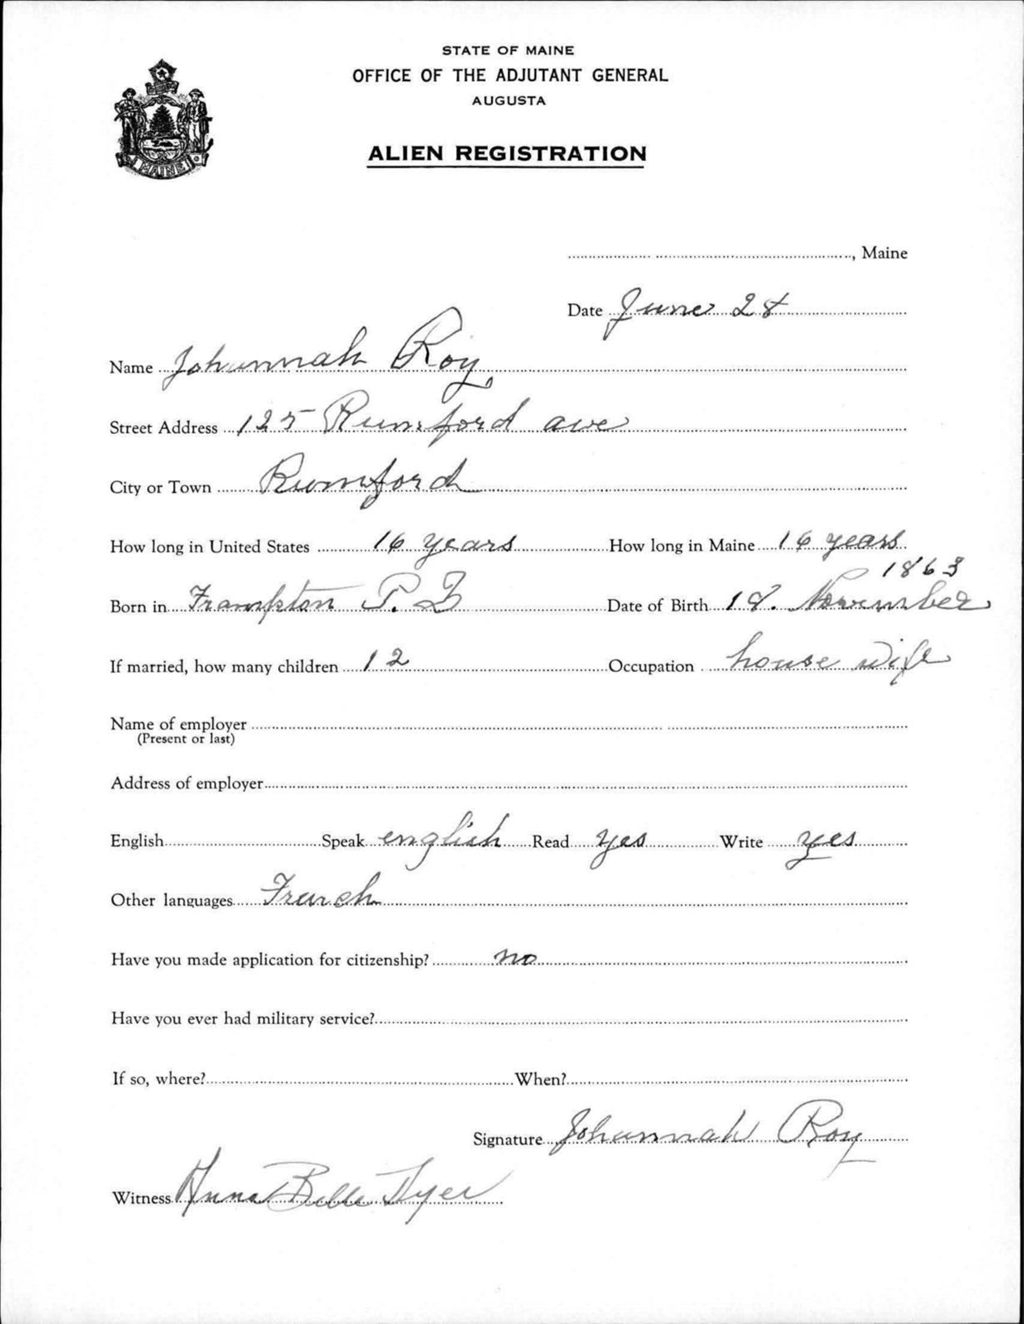 STATE OF MAINE
OFFICE OF THE ADJUTANT GENERAL
AUGUSTA
ALIEN REGISTRATION
MAINE
, Maine
Date June 28
Name Johannah Roy
Street Address 125 Rumford ave
City or Town Rumford
How long in United States 16 years How long in Maine 16 years
1863
Born in Frampton P. Q Date of Birth 18. November
If married, how many children 12 Occupation house wife
Name of employer
(Present or last)
Address of employer
English Speak english Read yes Write yes
Other languages French
Have you made application for citizenship? no
Have you ever had military service?
If so, where? When?
Signature Johannah Roy
Witness Anna Belle Dyer